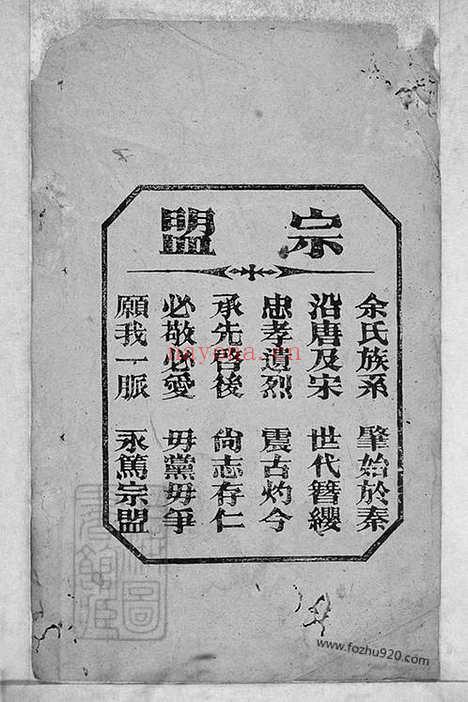 宗盟
余氏族系 肇始於秦
沿唐及宋 世代簪纓
忠孝遺烈 震古灼今
承先啓後 尙志存仁
必敬必愛 毋黨毋爭
願我一脈 永篤宗盟
nayona.cn
www.fozhu920.com